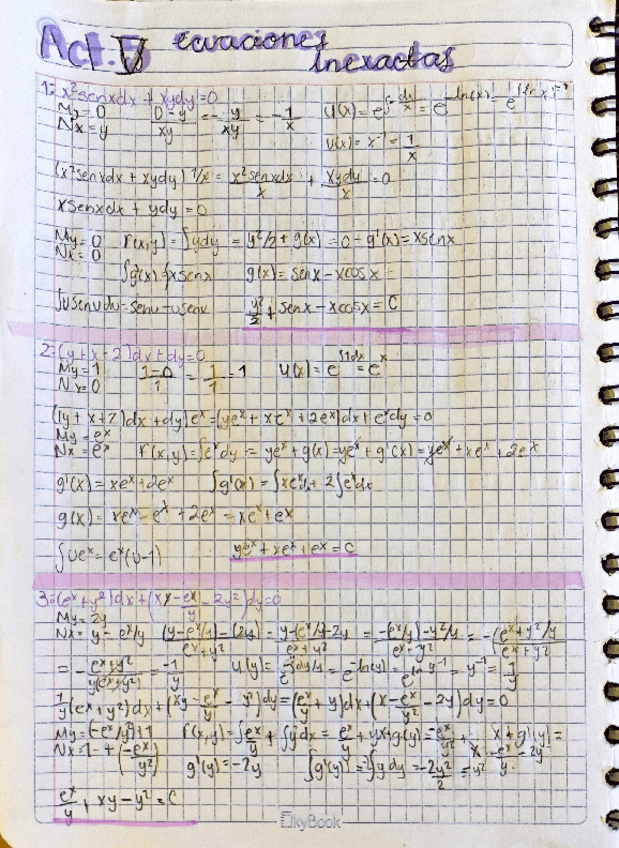 Act. 5 ecuaciones
inexactas
1= x²senxdx + xydy=0
My=0 0-y/xy = -y/xy = -1/x u(x)= e^∫-dx/x = e^-ln(x) = e^
Nx=y u(x)= x⁻¹ = 1/x
(x²senxdx + xydy) 1/x = x²senxdx/x + xydy/x = 0
xsenxdx + ydy = 0
My=0 F(x,y)=∫ydy = y²/2 + g(x) = 0 - g'(x) = xsenx
Nx=0
∫g'(x) = ∫xsenx g(x)= senx - xcosx
∫usenudu= senu - ucosu y²/2 + senx - xcosx = C
2=(y+x+2)dx+dy=0
My=1 1-0/1 = 1/1 = 1 u(x)= e^∫1dx = e^x
Nx=0
((y+x+2)dx+dy)e^x=(ye^x+xe^x+2e^x)dx+e^xdy=0
My=e^x
Nx=e^x F(x,y)=∫e^xdy = ye^x+g(x)=ye^x+g'(x)=ye^x+xe^x+2e^x
g'(x)=xe^x+2e^x ∫g'(x)=∫xe^xdx+2∫e^xdx
g(x)= xe^x-e^x+2e^x = xe^x+e^x
∫ue^x=e^x(u-1) ye^x+xe^x+e^x=C
3=(e^x+y²)dx+(xy-e^x/y-2y²)dy=0
My=2y
Nx= y-e^x/y (y-e^x/y)-(2y)/e^x+y² = y-(e^x/y)-2y/e^x+y² = -(e^x/y)-y²/y/e^x+y² = -(e^x+y²/y/e^x+y²
= -e^x+y²/y(e^x+y²) = -1/y u(y)= e^-∫dy/y = e^-ln(y) = e^ln y⁻¹ = y⁻¹ = 1/y
1/y(e^x+y²)dx+(xy-e^x/y-y²)dy=(e^x/y+y)dx+(x-e^x/y²-2y)dy=0
My=(-e^x/y²)+1 F(x,y)=∫e^x/y+∫ydx=e^x/y+yx+g(y)=-e^x/y²+x+g'(y)=
Nx=1+(-e^x/y²) x-e^x/y²-2y
g'(y)=-2y ∫g'(y)=-2∫ydy=-2y²/2=-y²
e^x/y+xy-y²=C
SkyBook